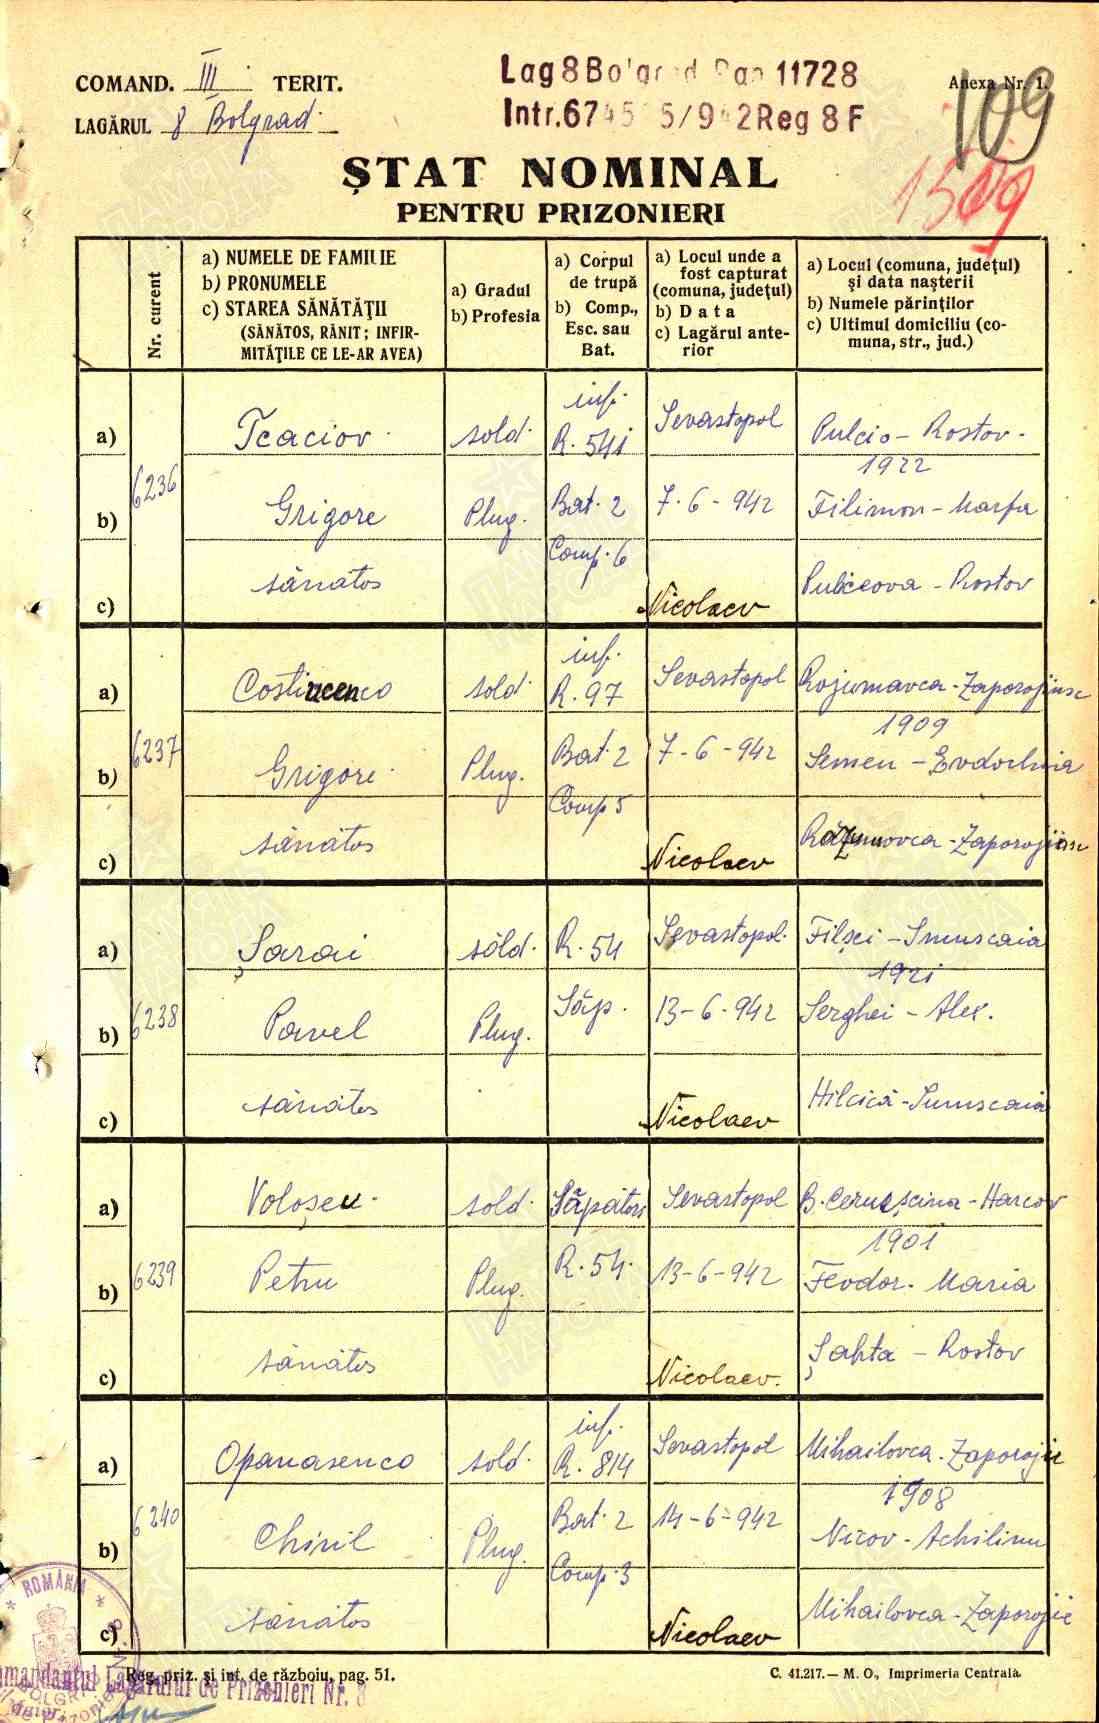 COMAND. III TERIT.
LAGĂRUL 8 Bolgrad.
Lag 8 Bolgrad 11728
Intr. 6745 5/942 Reg 8 F
Anexa Nr. 1.
109
1509
ȘTAT NOMINAL
PENTRU PRIZONIERI
Nr. curent
a) NUMELE DE FAMILIE
b) PRONUMELE
c) STAREA SĂNĂTĂȚII
(SĂNĂTOS, RĂNIT; INFIR-
MITĂȚILE CE LE-AR AVEA)
a) Gradul
b) Profesia
a) Corpul
de trupă
b) Comp.,
Esc. sau
Bat.
a) Locul unde a
fost capturat
(comuna, județul)
b) Data
c) Lagărul ante-
rior
a) Locul (comuna, județul)
și data nașterii
b) Numele părinților
c) Ultimul domiciliu (co-
muna, str., jud.)
6236
a) Tcaciov. sold. inf. R. 541 Sevastopol Pulcio - Rostov.
1922
b) Grigore Plug. Bat. 2 7-6-942 Filimon - Marfa
Comp. 6
c) sănătos Nicolaev Rostov
6237
a) sold. inf. R. 97 Sevastopol
1909
b) Grigore. Plug. Bat. 2 7-6-942 Semen - Evdochia
Comp 5
c) sănătos Nicolaev Razumovca
6238
a) Șarai sold. R. 54 Sevastopol. Filșci - Sumscaia
1921
b) Pavel Plug. Săp. 13-6-942 Serghei - Alex.
c) sănătos Nicolaev Hilcică - Sumscaia
6239
a) Voloșeu. sold. Săpători Sevastopol Harcov
1901
b) Petru Plug. R. 54. 13-6-942 Feodor. Maria
c) sănătos Nicolaev. Șahta - Rostov
6240
a) Opanasenco sold. inf. R. 814 Sevastopol Mihailovca. Zaporojie
1908
b) Chiril Plug. Bat. 2 14-6-942
Comp. 3
c) sănătos Nicolaev Mihailovca - Zaporojie
Reg. priz. și int. de războiu, pag. 51.
C. 41.217. — M. O., Imprimeria Centrală.
* ROMÂNIA *
Comandantul Lagărului de Prizonieri Nr. 8
ПАМЯТЬ
НАРОДА